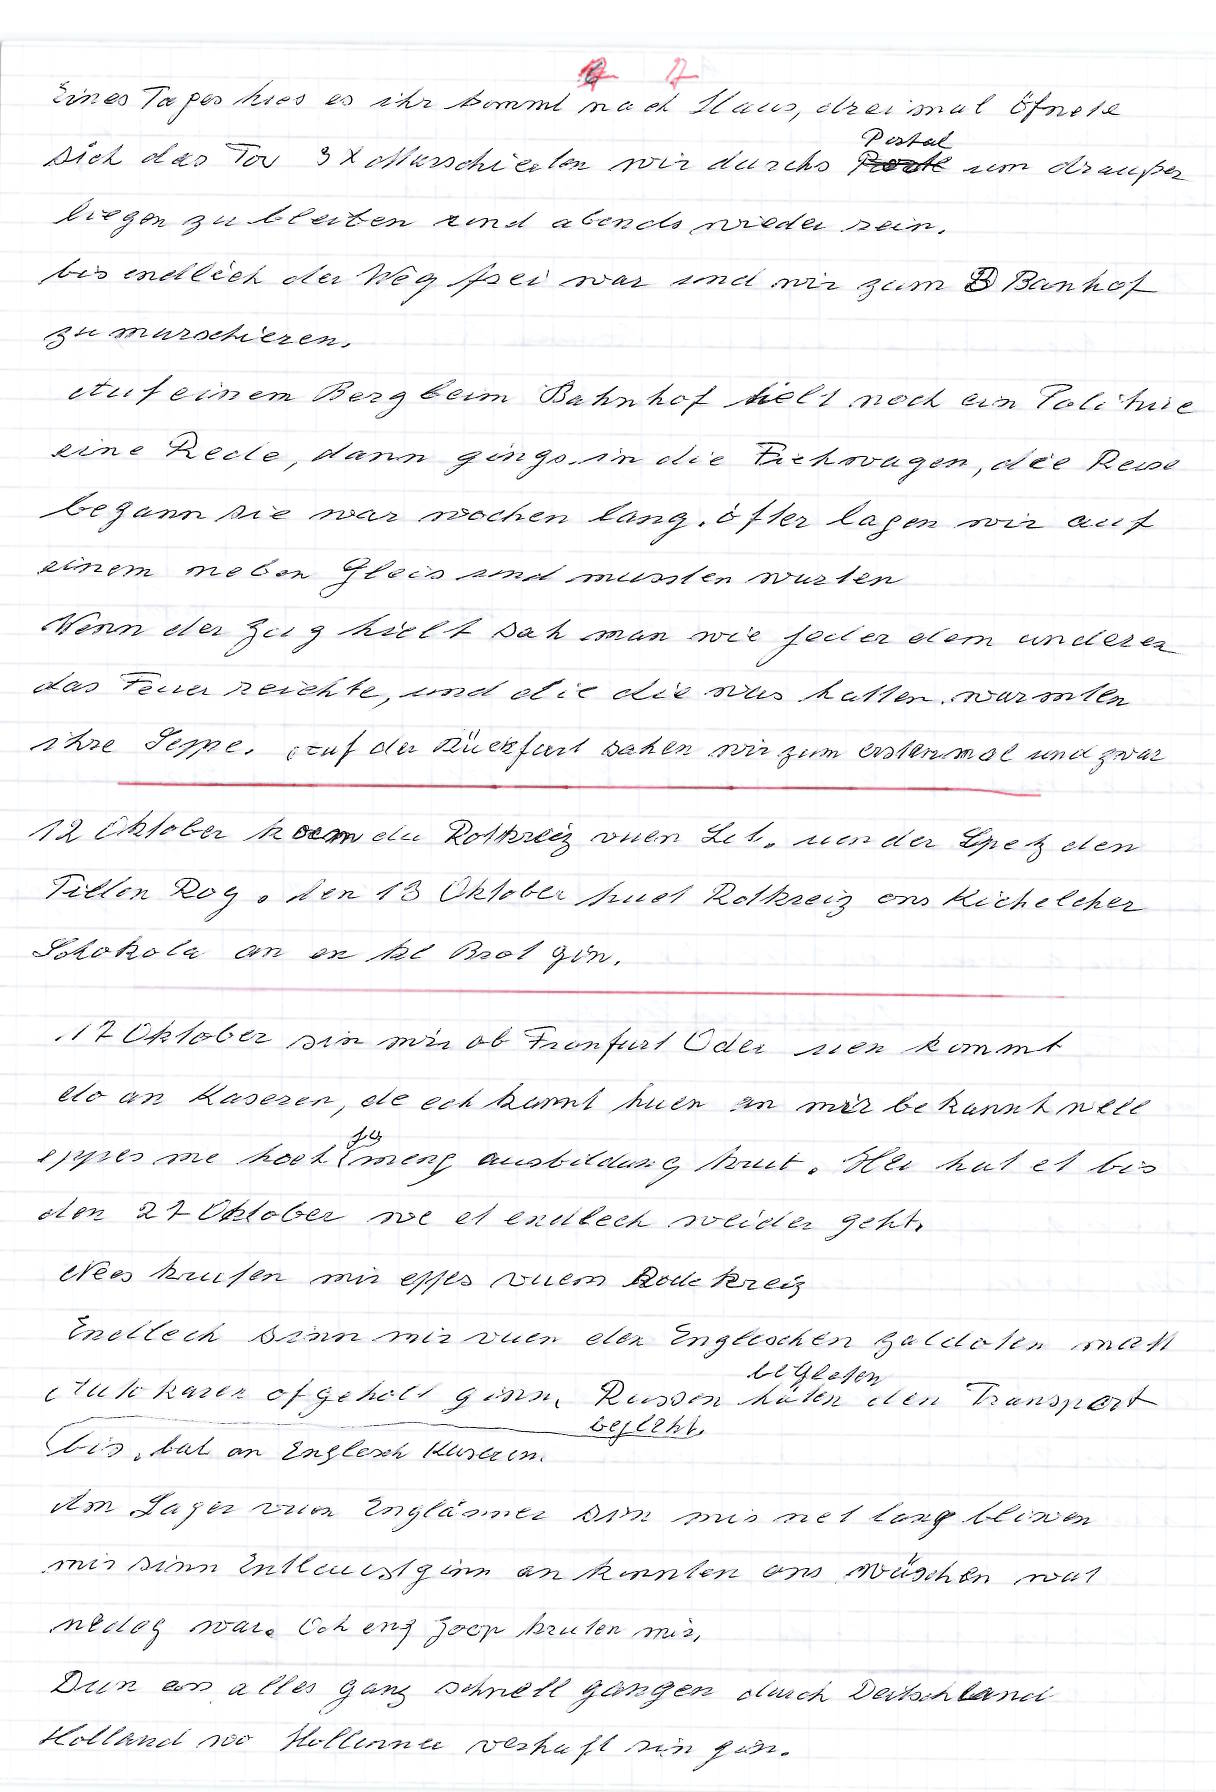 7
Eines Tages hies es ihr kommt nach Haus, drei mal öfnete
Portal
sich das Tor 3 x Marschierten wir durchs um draußen
liegen zu bleiben und abends wieder rein.
bis endlich der Weg frei war und wir zum Banhof
zu marschieren.
Auf einem Berg beim Bahnhof hielt noch ein
eine Rede, dann gings in die Fiehwagen, die Reise
begann sie war wochen lang. öfter lagen wir auf
einem neben Gleis und mussten warten
Wenn der Zug hielt sah man wie jeder dem anderen
das Feuer reichte, und die die was hatten warmten
ihre Suppe. Auf der Rückfart sahen wir zum erstenmal und zwar
12 Oktober koem da Rotkreiz vuen Let. uen der Spetz den
Tillen Rog. den 13 Oktober huet Rotkreiz ons Kichelcher
Schokola an en Brot gin.
17 Oktober sin mir ob Franfurt Oder uen kommt
do an Kaseren, de ech kannt huen an mir bekannt well
eppes me hoch meng ausbildung hut. Hei hat et bis
ja
den 27 Oktober we et endlech weider geht.
Nees kruten mir eppes vuem Rode kreiz
Endlech sinn mir vuen den Engleschen Zaldoten matt
Autokaren ofgeholt ginn. Russen häten den Transport
begleten
begleht.
bis. bat an Englesch Kaseren.
Am Lager vun Englänner sin mir net lang bliwen
mir sinn Entlaust ginn an konnten ons wäschen wat
nedeg war. Och eng Zoop kruten mir.
Dun as alles ganz schnell gangen durch Deitschland
Holland wo Hollänner verhaft sin gin.